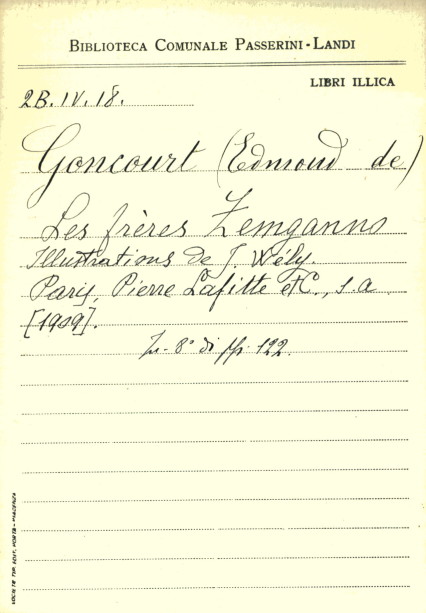 BIBLIOTECA COMUNALE PASSERINI-LANDI
LIBRI ILLICA
2B. IV. 18.
Goncourt (Edmond de)
Les frères Zemganno
Illustrations de J. Wély.
Paris, Pierre Lafitte et C., s. a.
[1909].
In-8° di pp. 122.